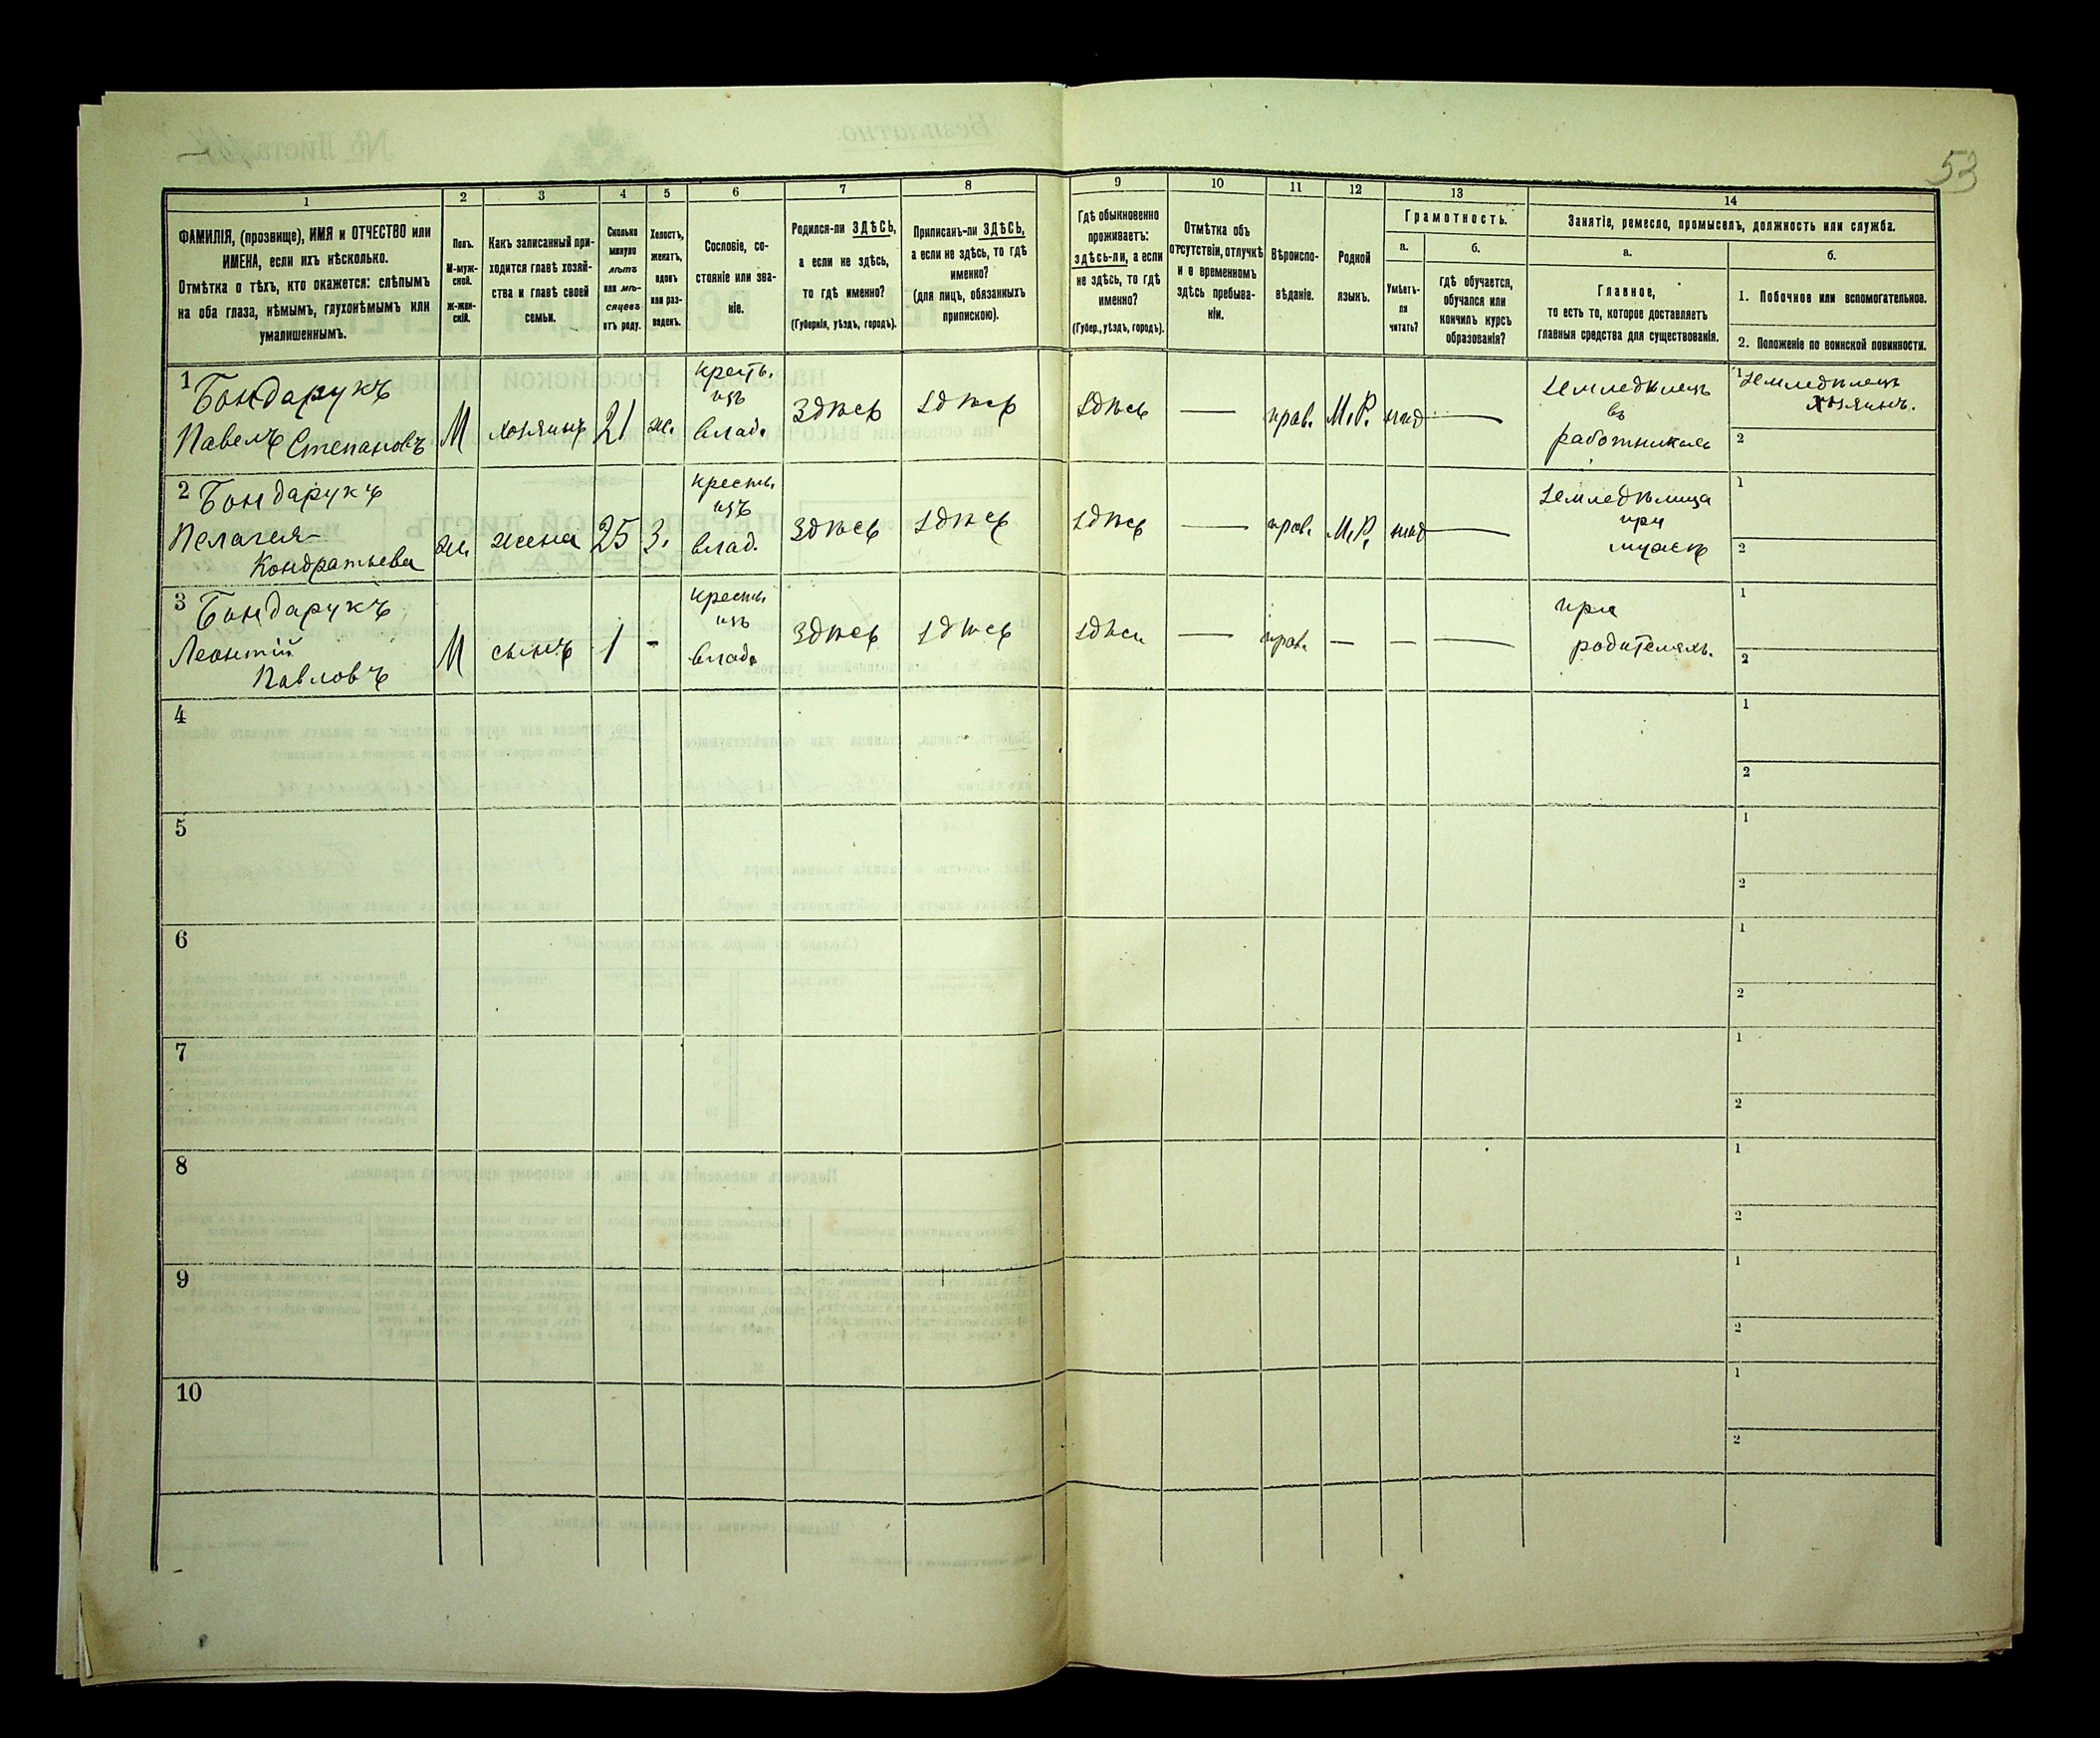 53
1
2
3
4
5
6
7
8
9
10
11
12
13
14
ФАМИЛІЯ, (прозвище), ИМЯ и ОТЧЕСТВО или
ИМЕНА, если ихъ нѣсколько.
Отмѣтка о тѣхъ, кто окажется: слѣпымъ
на оба глаза, нѣмымъ, глухонѣмымъ или
умалишеннымъ.
Полъ.
М-муж-
ской.
Ж-жен-
скій.
Какъ записанный при-
ходится главѣ хозяй-
ства и главѣ своей
семьи.
Сколько
минуло
лѣтъ
или мѣ-
сяцевъ
отъ роду.
Холостъ,
женатъ,
вдовъ
или раз-
веденъ.
Сословіе, со-
стояніе или зва-
ніе.
Родился-ли ЗДѢСЬ,
а если не здѣсь,
то гдѣ именно?
(Губернія, уѣздъ, городъ).
Приписанъ-ли ЗДѢСЬ,
а если не здѣсь, то гдѣ
именно?
(для лицъ, обязанныхъ
припискою).
Гдѣ обыкновенно
проживаетъ:
здѣсь-ли, а если
не здѣсь, то гдѣ
именно?
(Губер., уѣздъ, городъ).
Отмѣтка объ
отсутствіи, отлучкѣ
и о временномъ
здѣсь пребыва-
ніи.
Вѣроиспо-
вѣданіе.
Родной
языкъ.
Грамотность.
а.
Умѣетъ-
ли
читать?
б.
гдѣ обучается,
обучался или
кончилъ курсъ
образованія?
Занятіе, ремесло, промыселъ, должность или служба.
а.
Главное,
то есть то, которое доставляетъ
главныя средства для существованія.
б.
1. Побочное или вспомогательное.
2. Положеніе по воинской повинности.
1 Бондарукъ
Павелъ Степановъ
М
хозяинъ
21
ж.
крест.
изъ
влад.
Здѣсь
Здѣсь
Здѣсь
—
прав.
М.Р.
—
Земледѣлецъ
въ
1 Земледѣлецъ
хозяинъ.
2
2 Бондарукъ
Пелагея
Кондратьева
ж.
жена
25
З.
крестьи
изъ
влад.
Здѣсь
Здѣсь
Здѣсь
—
прав.
М.Р.
—
Земледѣлица
при
мужѣ
1
2
3 Бондарукъ
Леонтій
Павловъ
М
сынъ
1
-
крестьи
изъ
влад.
Здѣсь
Здѣсь
Здѣсь
—
прав.
—
—
—
при
родителяхъ.
1
2
4
1
2
5
1
2
6
1
2
7
1
2
8
1
2
9
1
2
10
1
2